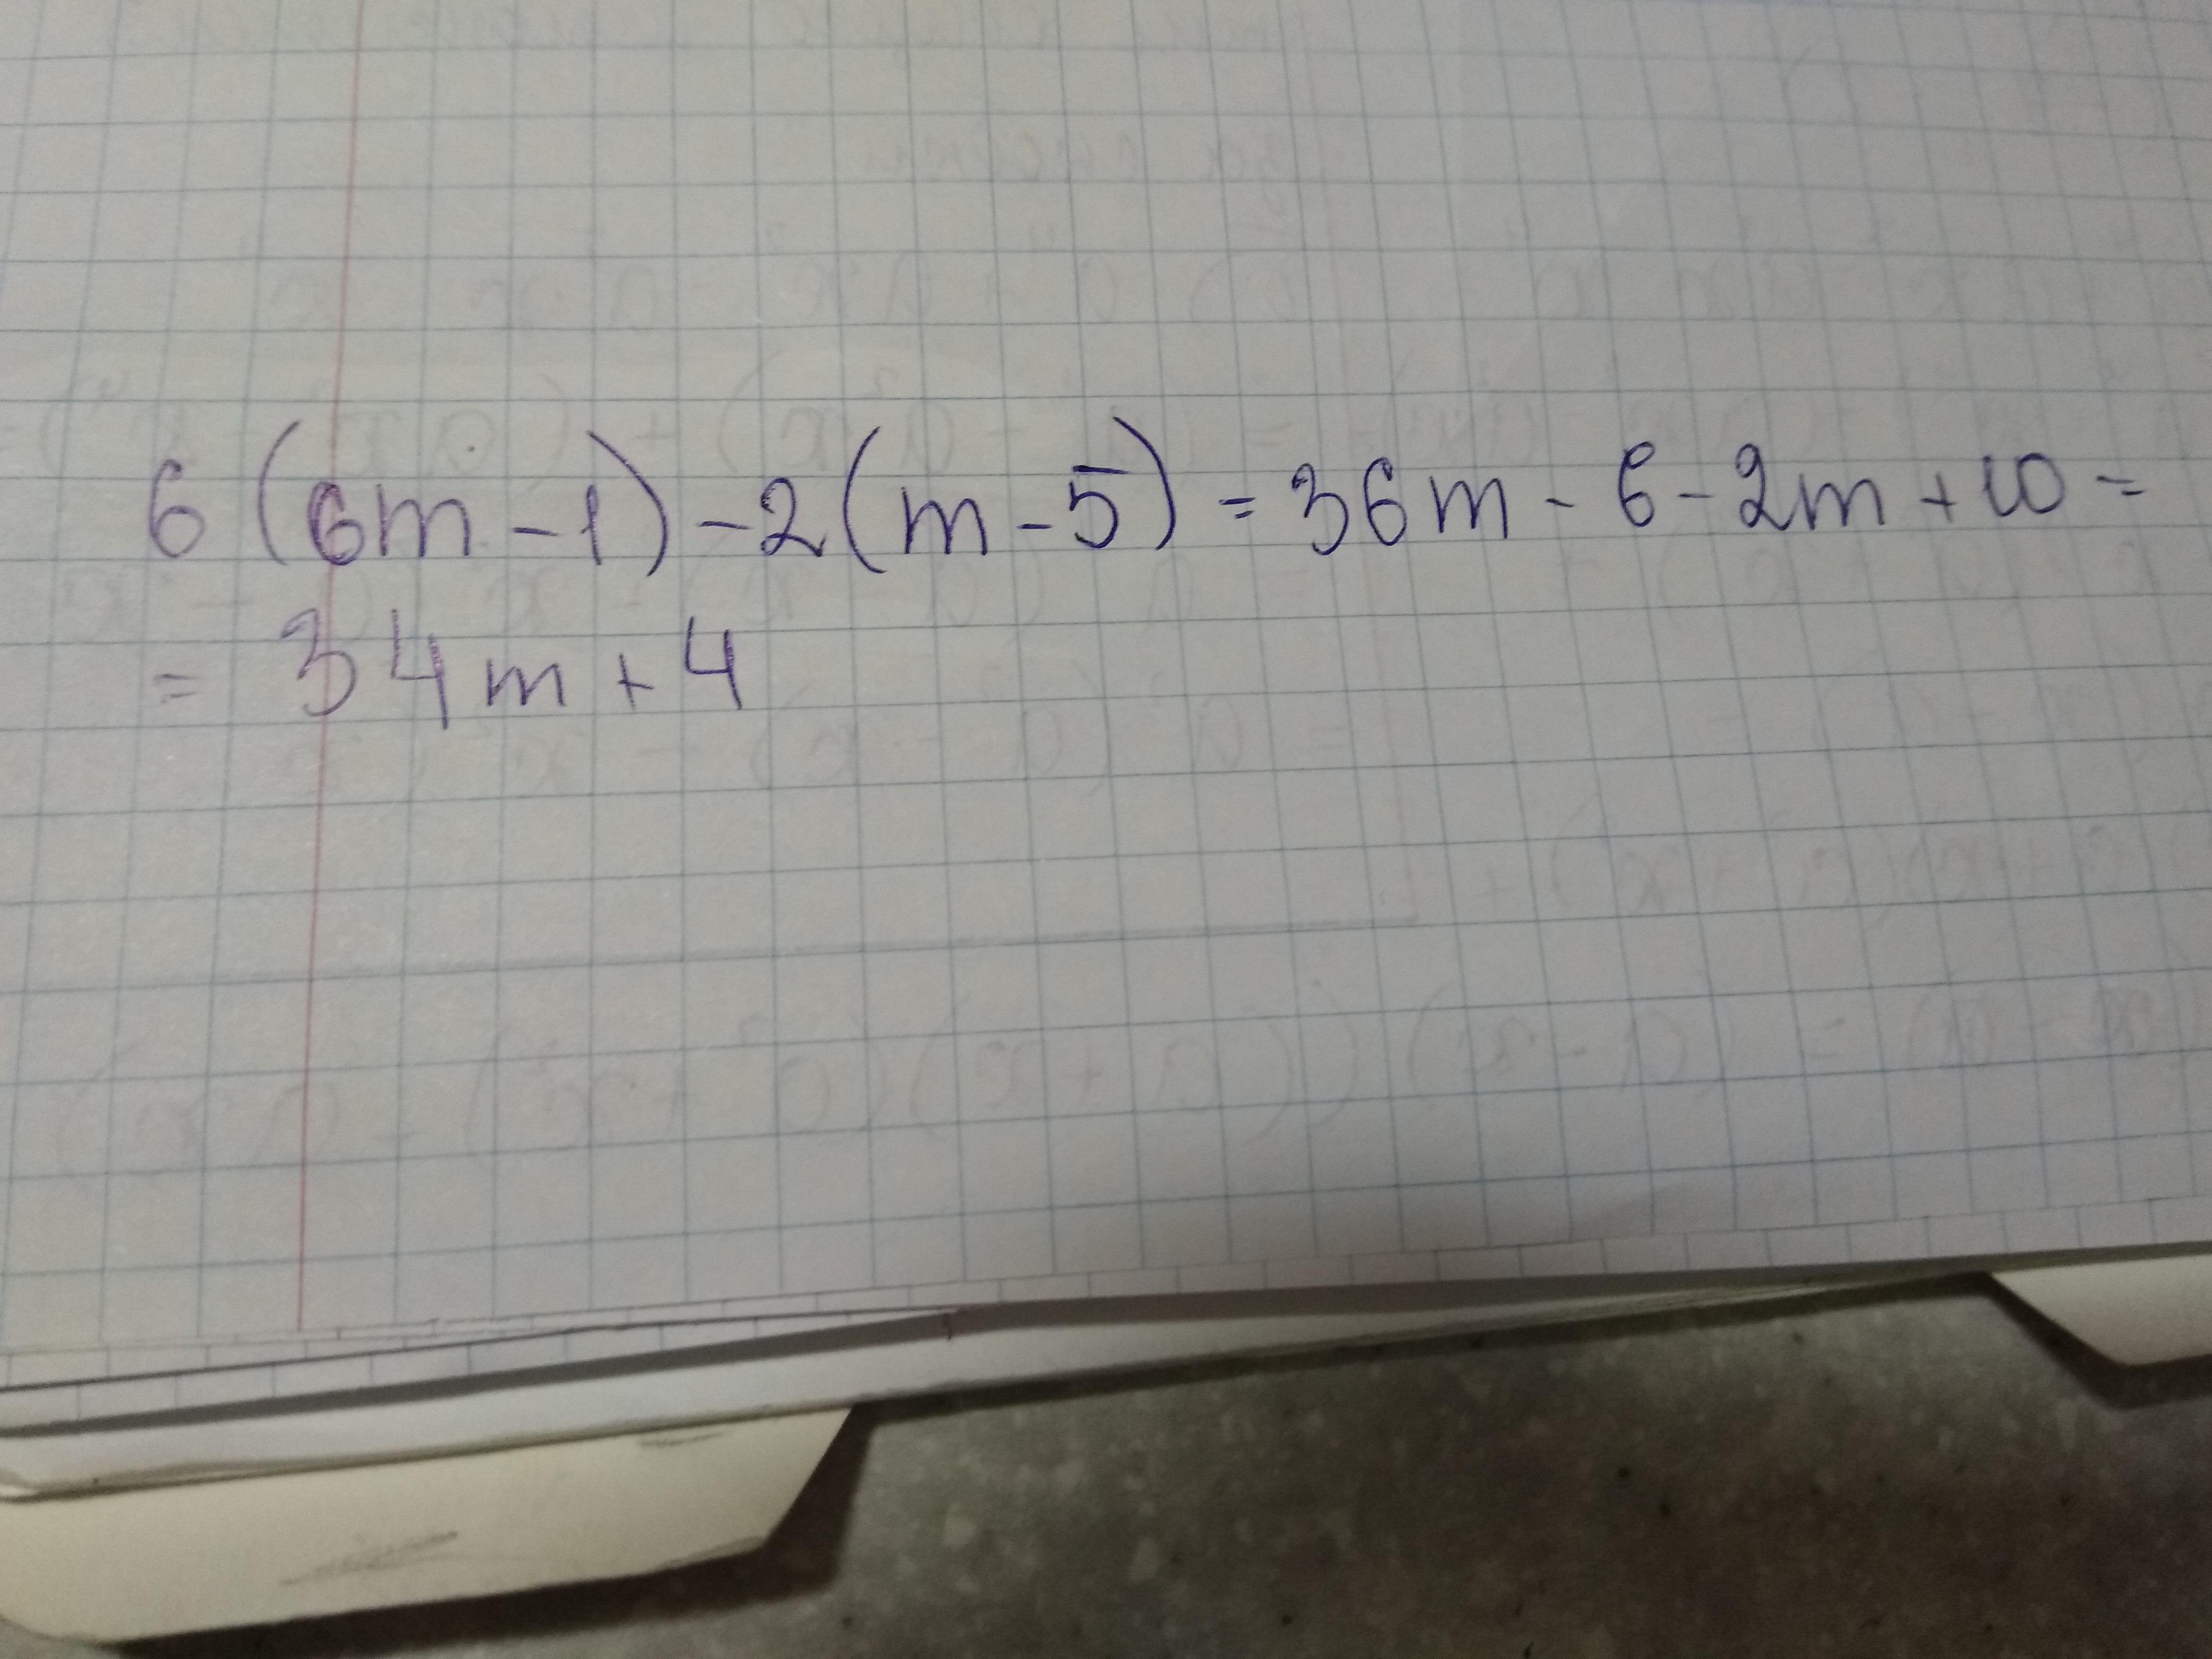 6(6m-1)-2(m-5)=36m-6-2m+10=
=34m+4